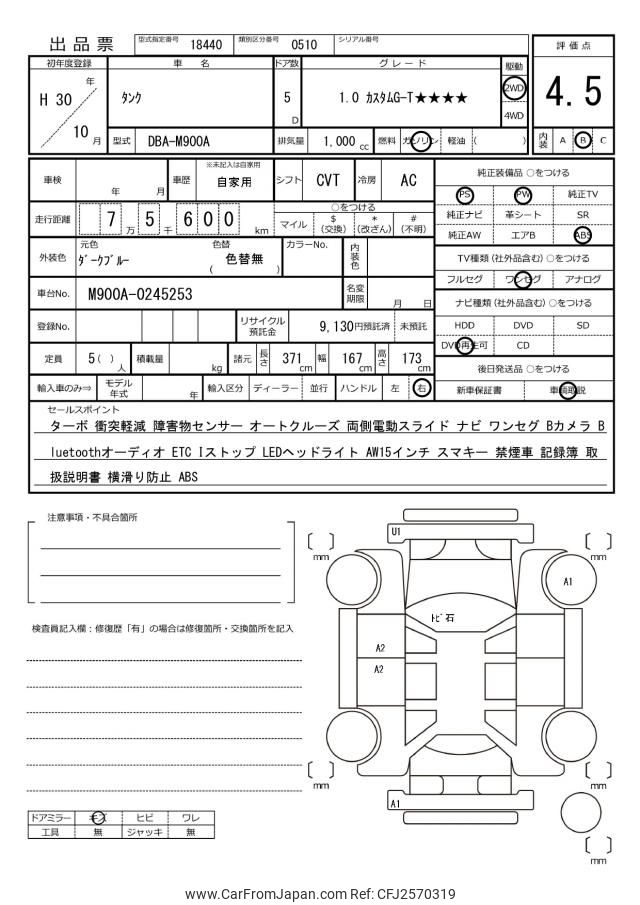 出品票 型式指定番号 18440 類別区分番号 0510 シリアル番号
評価点
4.5
内装 A B C
初年度登録 車名 ドア数 グレード 駆動
H 30 年 10 月 タンク 5 D 1.0 カスタムG-T★★★★ 2WD 4WD
型式 DBA-M900A 排気量 1,000 cc 燃料 ガソリン 軽油 ( )
車検 年 月 車歴 ※未記入は自家用 自家用 シフト CVT 冷房 AC
走行距離 7 5 万 千 6 0 0 km ○をつける マイル $ (交換) * (改ざん) # (不明)
外装色 元色 ダークブルー 色替 ( 色替無 ) カラーNo. 内装色
車台No. M900A-0245253 名変期限 月 日
登録No. リサイクル預託金 9,130円預託済 未預託
定員 5( )人 積載量 kg 諸元 長さ 371 cm 幅 167 cm 高さ 173 cm
輸入車のみ⇒ モデル年式 年 輸入区分 ディーラー 並行 ハンドル 左 右
純正装備品 ○をつける
PS PW 純正TV
純正ナビ 革シート SR
純正AW エアB ABS
TV種類 (社外品含む) ○をつける
フルセグ ワンセグ アナログ
ナビ種類 (社外品含む) ○をつける
HDD DVD SD
DVD再生可 CD
後日発送品 ○をつける
新車保証書 車輌取説
セールスポイント
ターボ 衝突軽減 障害物センサー オートクルーズ 両側電動スライド ナビ ワンセグ Bカメラ B
luetoothオーディオ ETC Iストップ LEDヘッドライト AW15インチ スマキー 禁煙車 記録簿 取
扱説明書 横滑り防止 ABS
注意事項・不具合箇所
検査員記入欄：修復歴「有」の場合は修復箇所・交換箇所を記入
ドアミラー キズ ヒビ ワレ
工具 無 ジャッキ 無
U1
[ ] mm
[ ] mm
A1
トビ石
A2
A2
[ ] mm
[ ] mm
A1
[ ] mm
www.CarFromJapan.com Ref: CFJ2570319